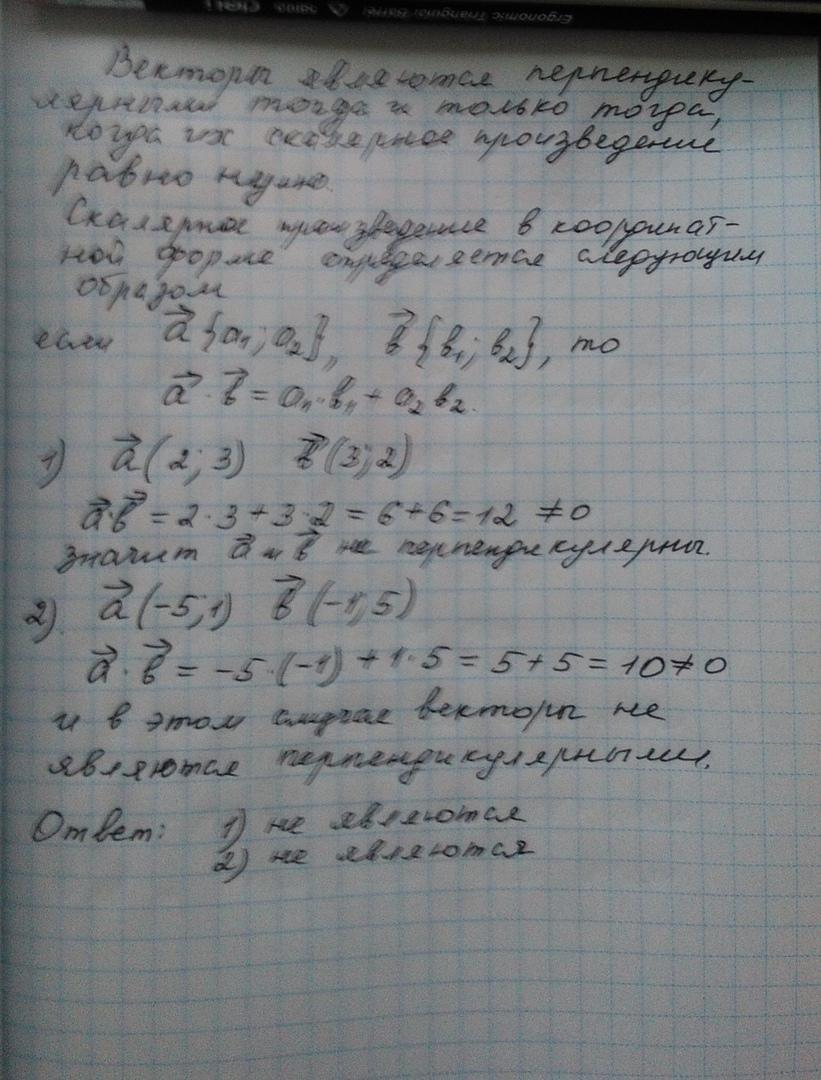 Ergonomic Triangular Barrel
Векторы являются перпендику-
лярными тогда и только тогда,
когда их скалярное произведение
равно нулю.
Скалярное произведение в координат-
ной форме определяется следующим
образом
если a⃗ {a₁; a₂}, b⃗ {b₁; b₂}, то
a⃗ · b⃗ = a₁·b₁ + a₂ b₂.
1) a⃗ (2; 3) b⃗ (3; 2)
a⃗·b⃗ = 2·3+3·2 = 6+6=12 ≠0
значит a⃗ и b⃗ не перпендикулярны.
2) a⃗ (-5; 1) b⃗ (-1; 5)
a⃗ · b⃗ = -5·(-1) + 1·5 = 5+5 = 10≠0
и в этом случае векторы не
являются перпендикулярными.
Ответ: 1) не являются
2) не являются